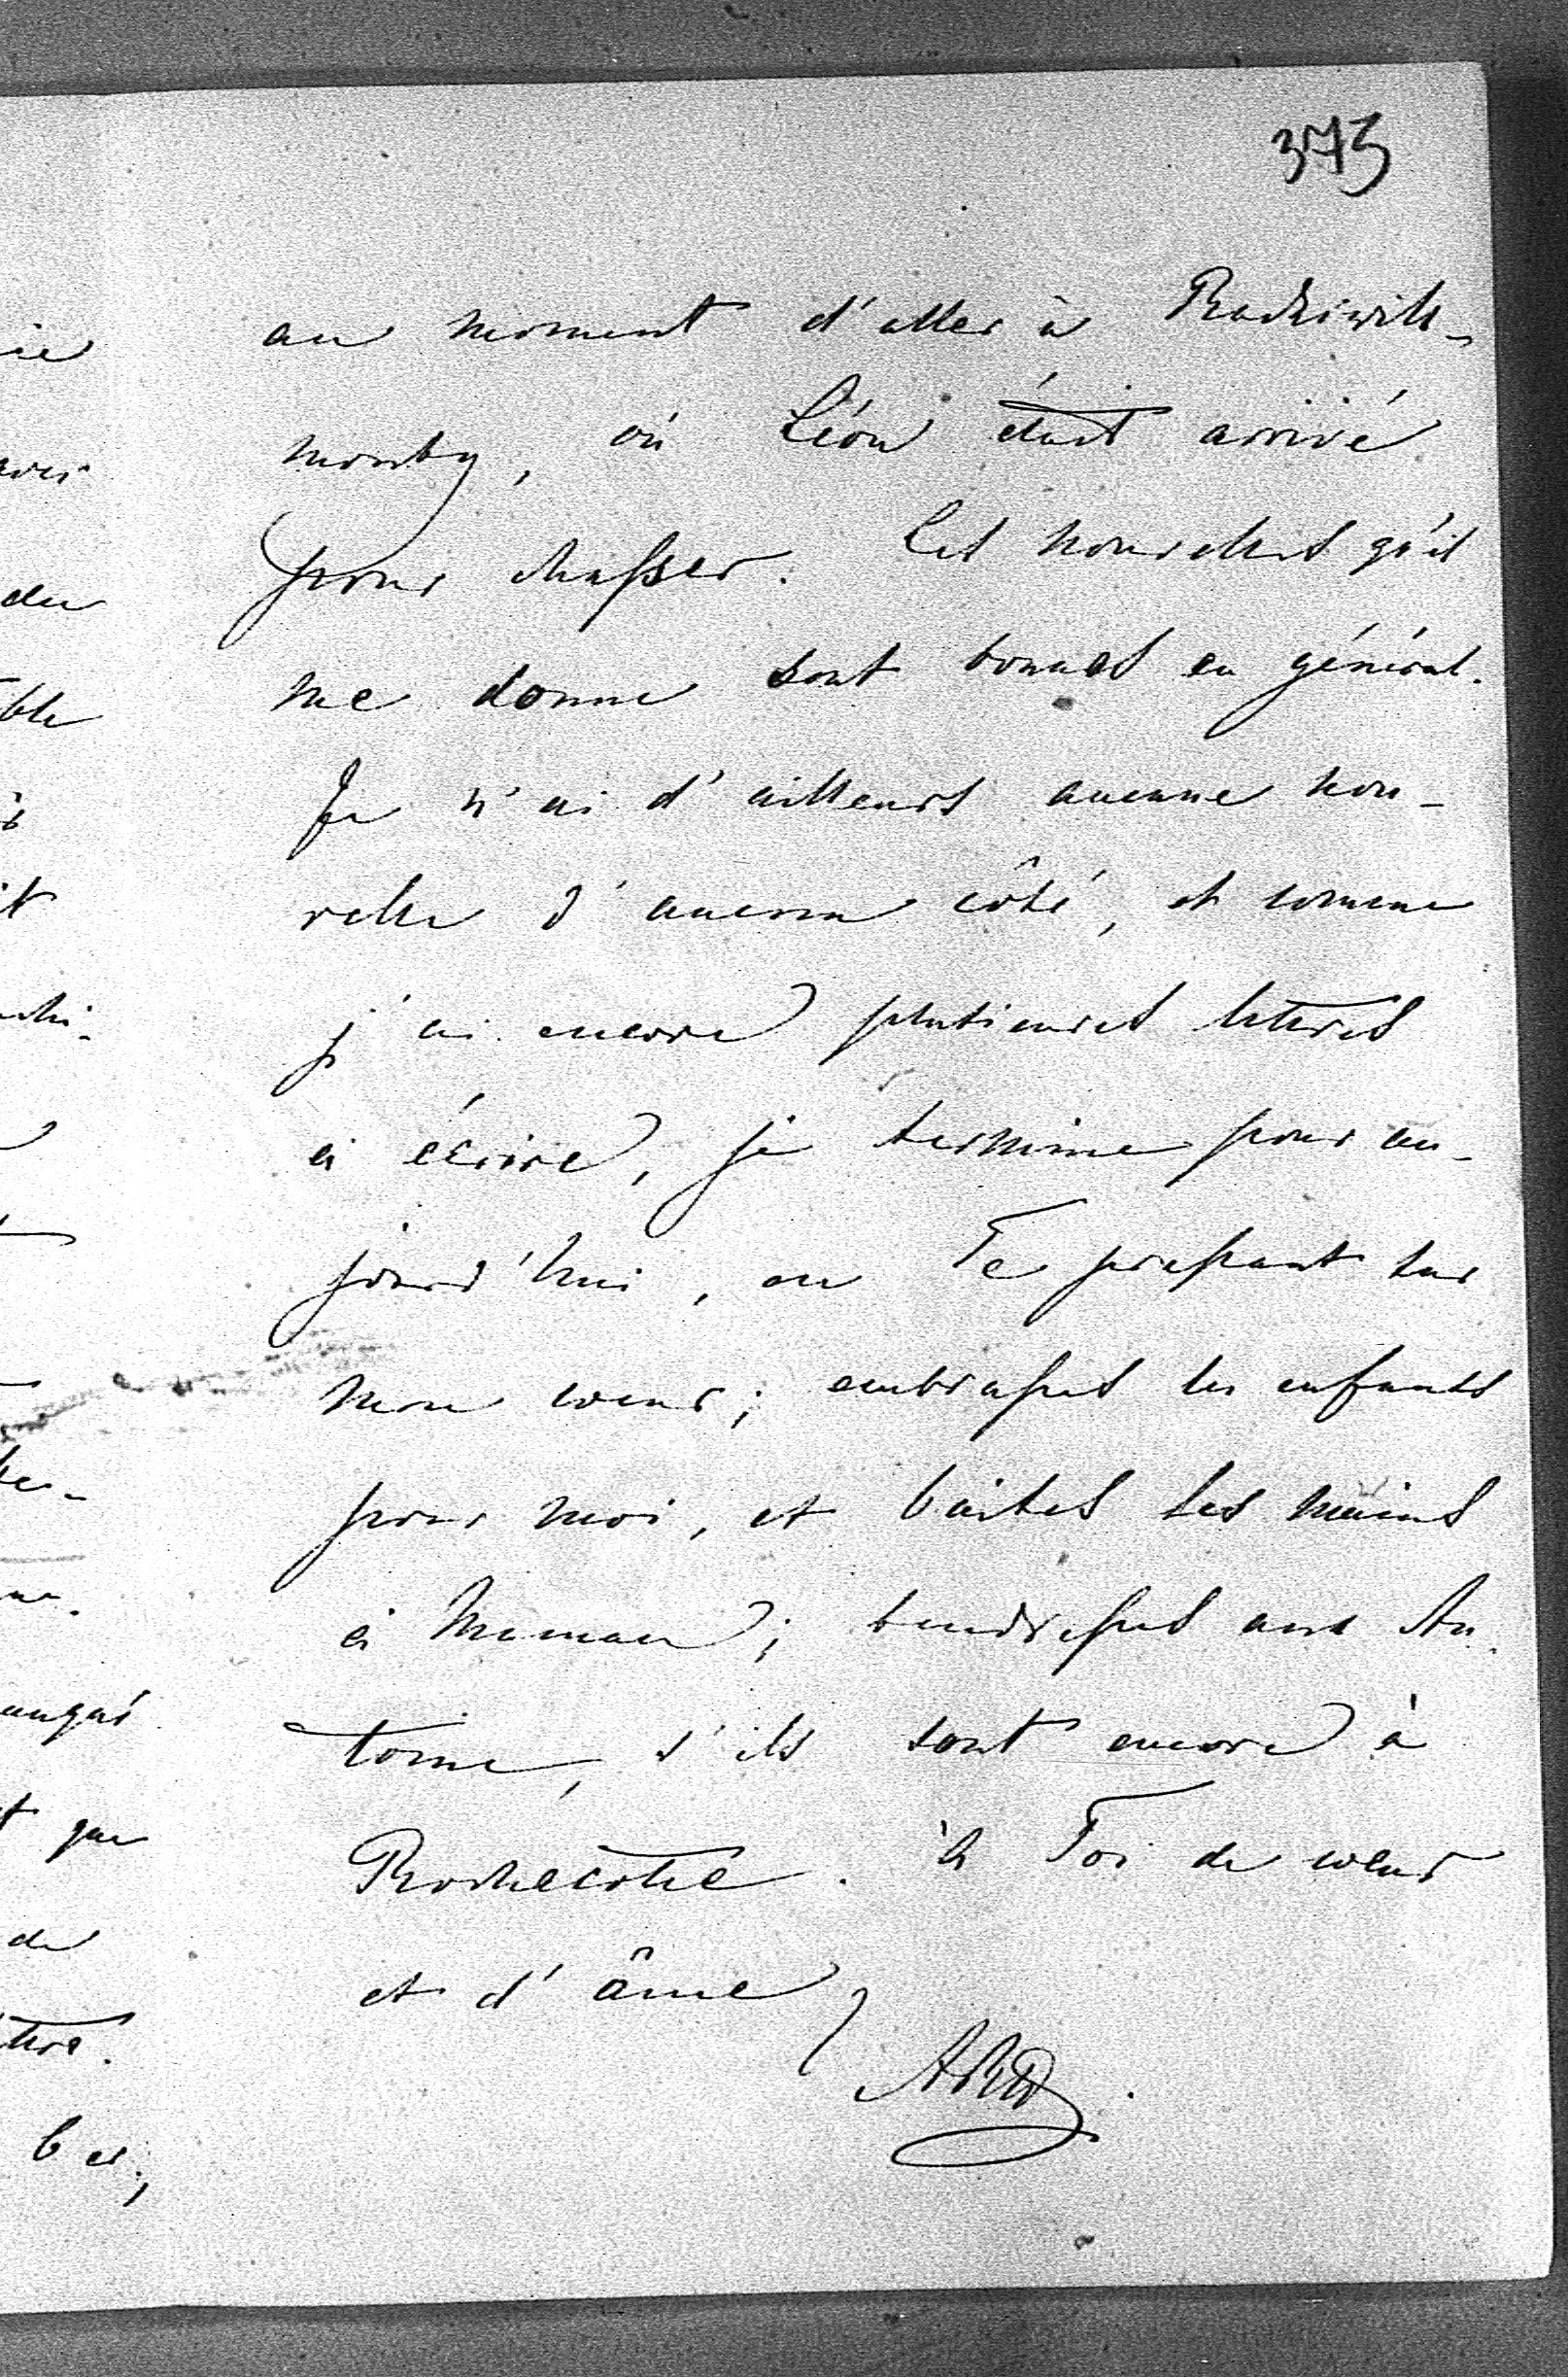 373
au moment d'aller à Radziwill-
monty, où Léon était arrivé
pour chasser. Les nouvelles qu'il
me donne sont bonnes en général.
Je n'ai d'ailleurs aucune nou-
velle d'aucun côté, et comme
j'ai encore plusieures lettres
à écrire, je termine pour au-
jourd'hui, en Te pressant sur
mon coeur; embrasses les enfants
pour moi, et baises les mains
à Maman; tendresses aux An-
toine, s'ils sont encore à
Rochecotte. à Toi de coeur
et d'âme